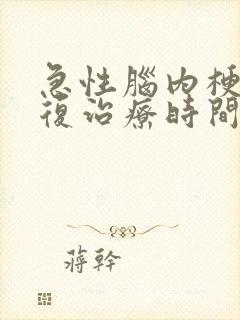 急性腦內梗
復治療時間
蔣幹